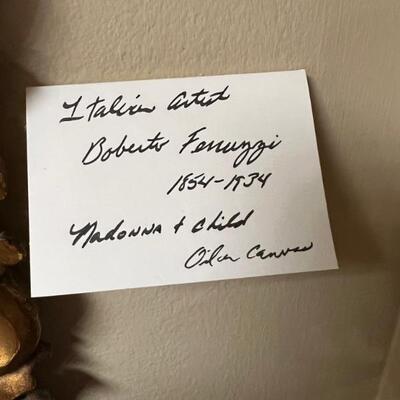 Italian Artist
Boberto Ferruzzi
1854-1934
Madonna + Child
Oil on Canvas